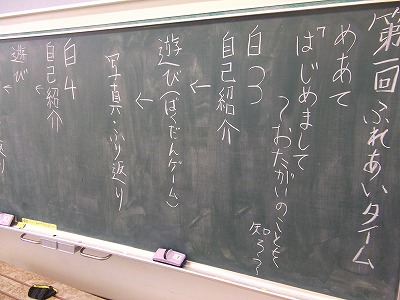 第一回 ふれあいタイム
めあて
「はじめまして
～おたがいのことを
知ろう～
白3
自己紹介
↓
遊び(ばくだんゲーム)
↓
写真・ふり返り
白4
自己紹介
↓
遊び
↓